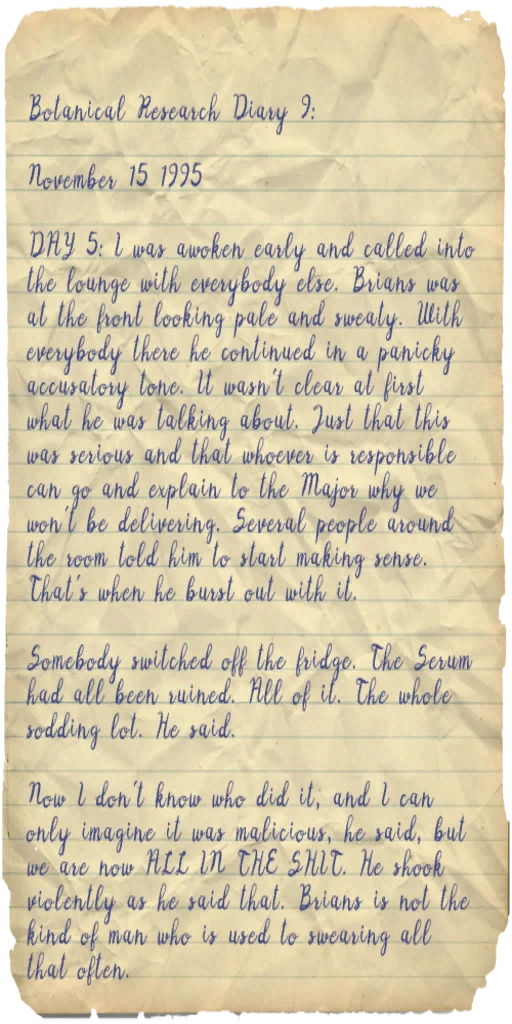 Botanical Research Diary 9:
November 15 1995
DAY 5: I was awoken early and called into
the lounge with everybody else. Brians was
at the front looking pale and sweaty. With
everybody there he continued in a panicky
accusatory tone. It wasn't clear at first
what he was talking about. Just that this
was serious and that whoever is responsible
can go and explain to the Major why we
won't be delivering. Several people around
the room told him to start making sense.
That's when he burst out with it.
Somebody switched off the fridge. The Serum
had all been ruined. All of it. The whole
sodding lot. He said.
Now I don't know who did it, and I can
only imagine it was malicious, he said, but
we are now ALL IN THE SHIT. He shook
violently as he said that. Brians is not the
kind of man who is used to swearing all
that often.